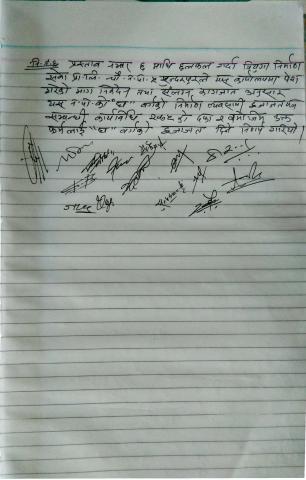 नि.नं.६ प्रस्ताव नम्बर ६ माथि छलफल गर्दा त्रियुगा निर्माण
सेवा प्रा.लि. चौ.न.पा. ४ सुन्दरपुरले यस कार्यालयमा पेश
गरेको माग निवेदन तथा संलग्न कागजात अनुसार
यस न.पा.को "घ" वर्गको निर्माण व्यवसायी इजाजतपत्र
सम्बन्धी कार्यविधि २०७५ को दफा २ बमोजिम उक्त
फर्मलाई "घ" वर्गको इजाजत दिने निर्णय गरियो।